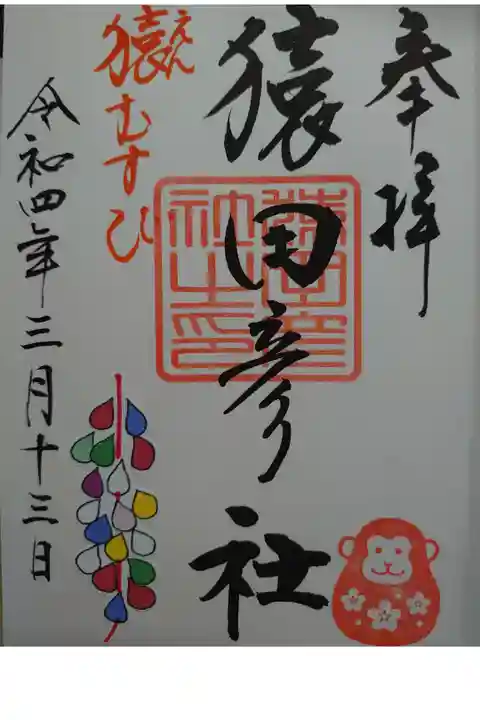 奉拝
猿田彦社
猿田彦
社之印
えん
猿むすひ
令和四年三月十三日